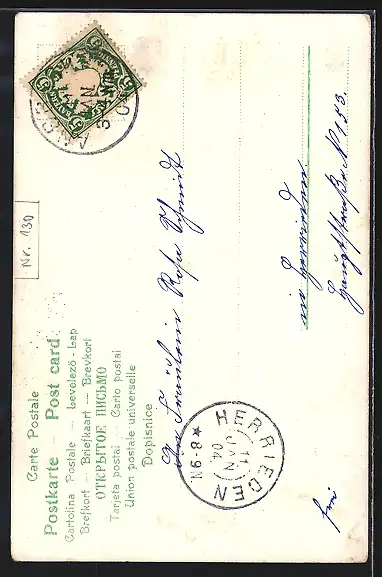 Carte Postale
Postkarte — Post card
Cartolina Postale — Levelező-Lap
Brefkort — Briefkaart — Brevkort
ОТКРЫТОЕ ПИСЬМО
Tarjeta postal — Carto postal
Union postale universelle
Dopisnice
Nr. 130
BAYERN
5
5
JAN
Fräulein Rosa Schmidt
in Herrieden
Hauptstraße No 153.
frei
HERRIEDEN
11
JAN
04
★ 8-9N